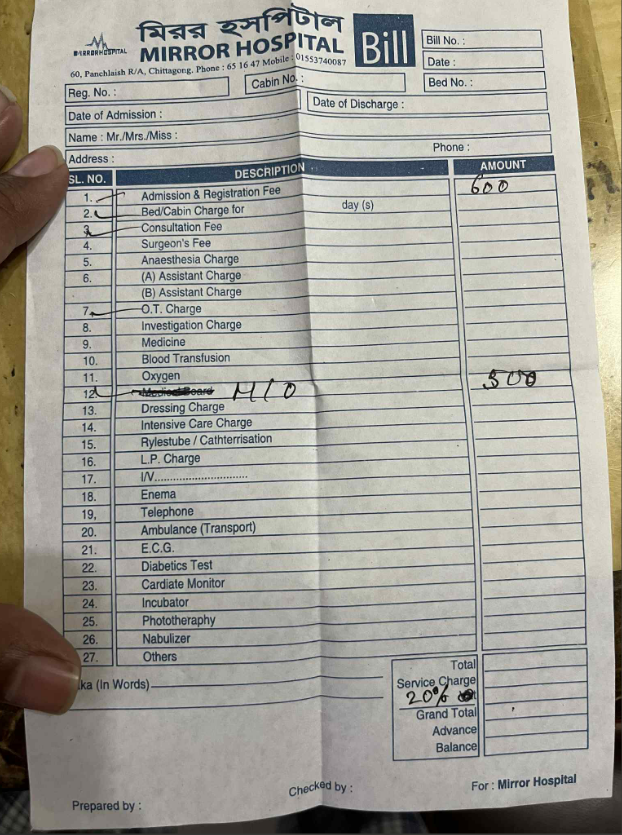 মিরর হসপিটাল
MIRROR HOSPITAL
MIRROR HOSPITAL
60, Panchlaish R/A, Chittagong. Phone : 65 16 47 Mobile : 01553740087
Bill
Bill No. :
Date :
Reg. No. :
Cabin No. :
Bed No. :
Date of Admission :
Date of Discharge :
Name : Mr./Mrs./Miss :
Address :
Phone :
SL. NO. DESCRIPTION AMOUNT
1. Admission & Registration Fee 600
2. Bed/Cabin Charge for day (s)
3. Consultation Fee
4. Surgeon's Fee
5. Anaesthesia Charge
6. (A) Assistant Charge
(B) Assistant Charge
7. O.T. Charge
8. Investigation Charge
9. Medicine
10. Blood Transfusion
11. Oxygen
12. Medical Board M/O 500
13. Dressing Charge
14. Intensive Care Charge
15. Rylestube / Cathterrisation
16. L.P. Charge
17. I/V..............................
18. Enema
19, Telephone
20. Ambulance (Transport)
21. E.C.G.
22. Diabetics Test
23. Cardiate Monitor
24. Incubator
25. Phototheraphy
26. Nabulizer
27. Others
Total
(In Words)
Service Charge
20%
Grand Total
Advance
Balance
Prepared by :
Checked by :
For : Mirror Hospital